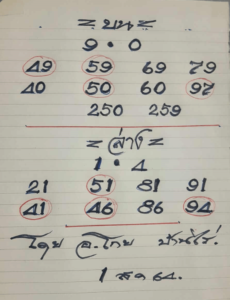 = บน =
9 • 0
49 59 69 79
40 50 60 97
250 259
= ล่าง =
1 • 4
21 51 81 91
41 46 86 94
โดย อ.โทย บ้านไร่.
1 ธค 64.